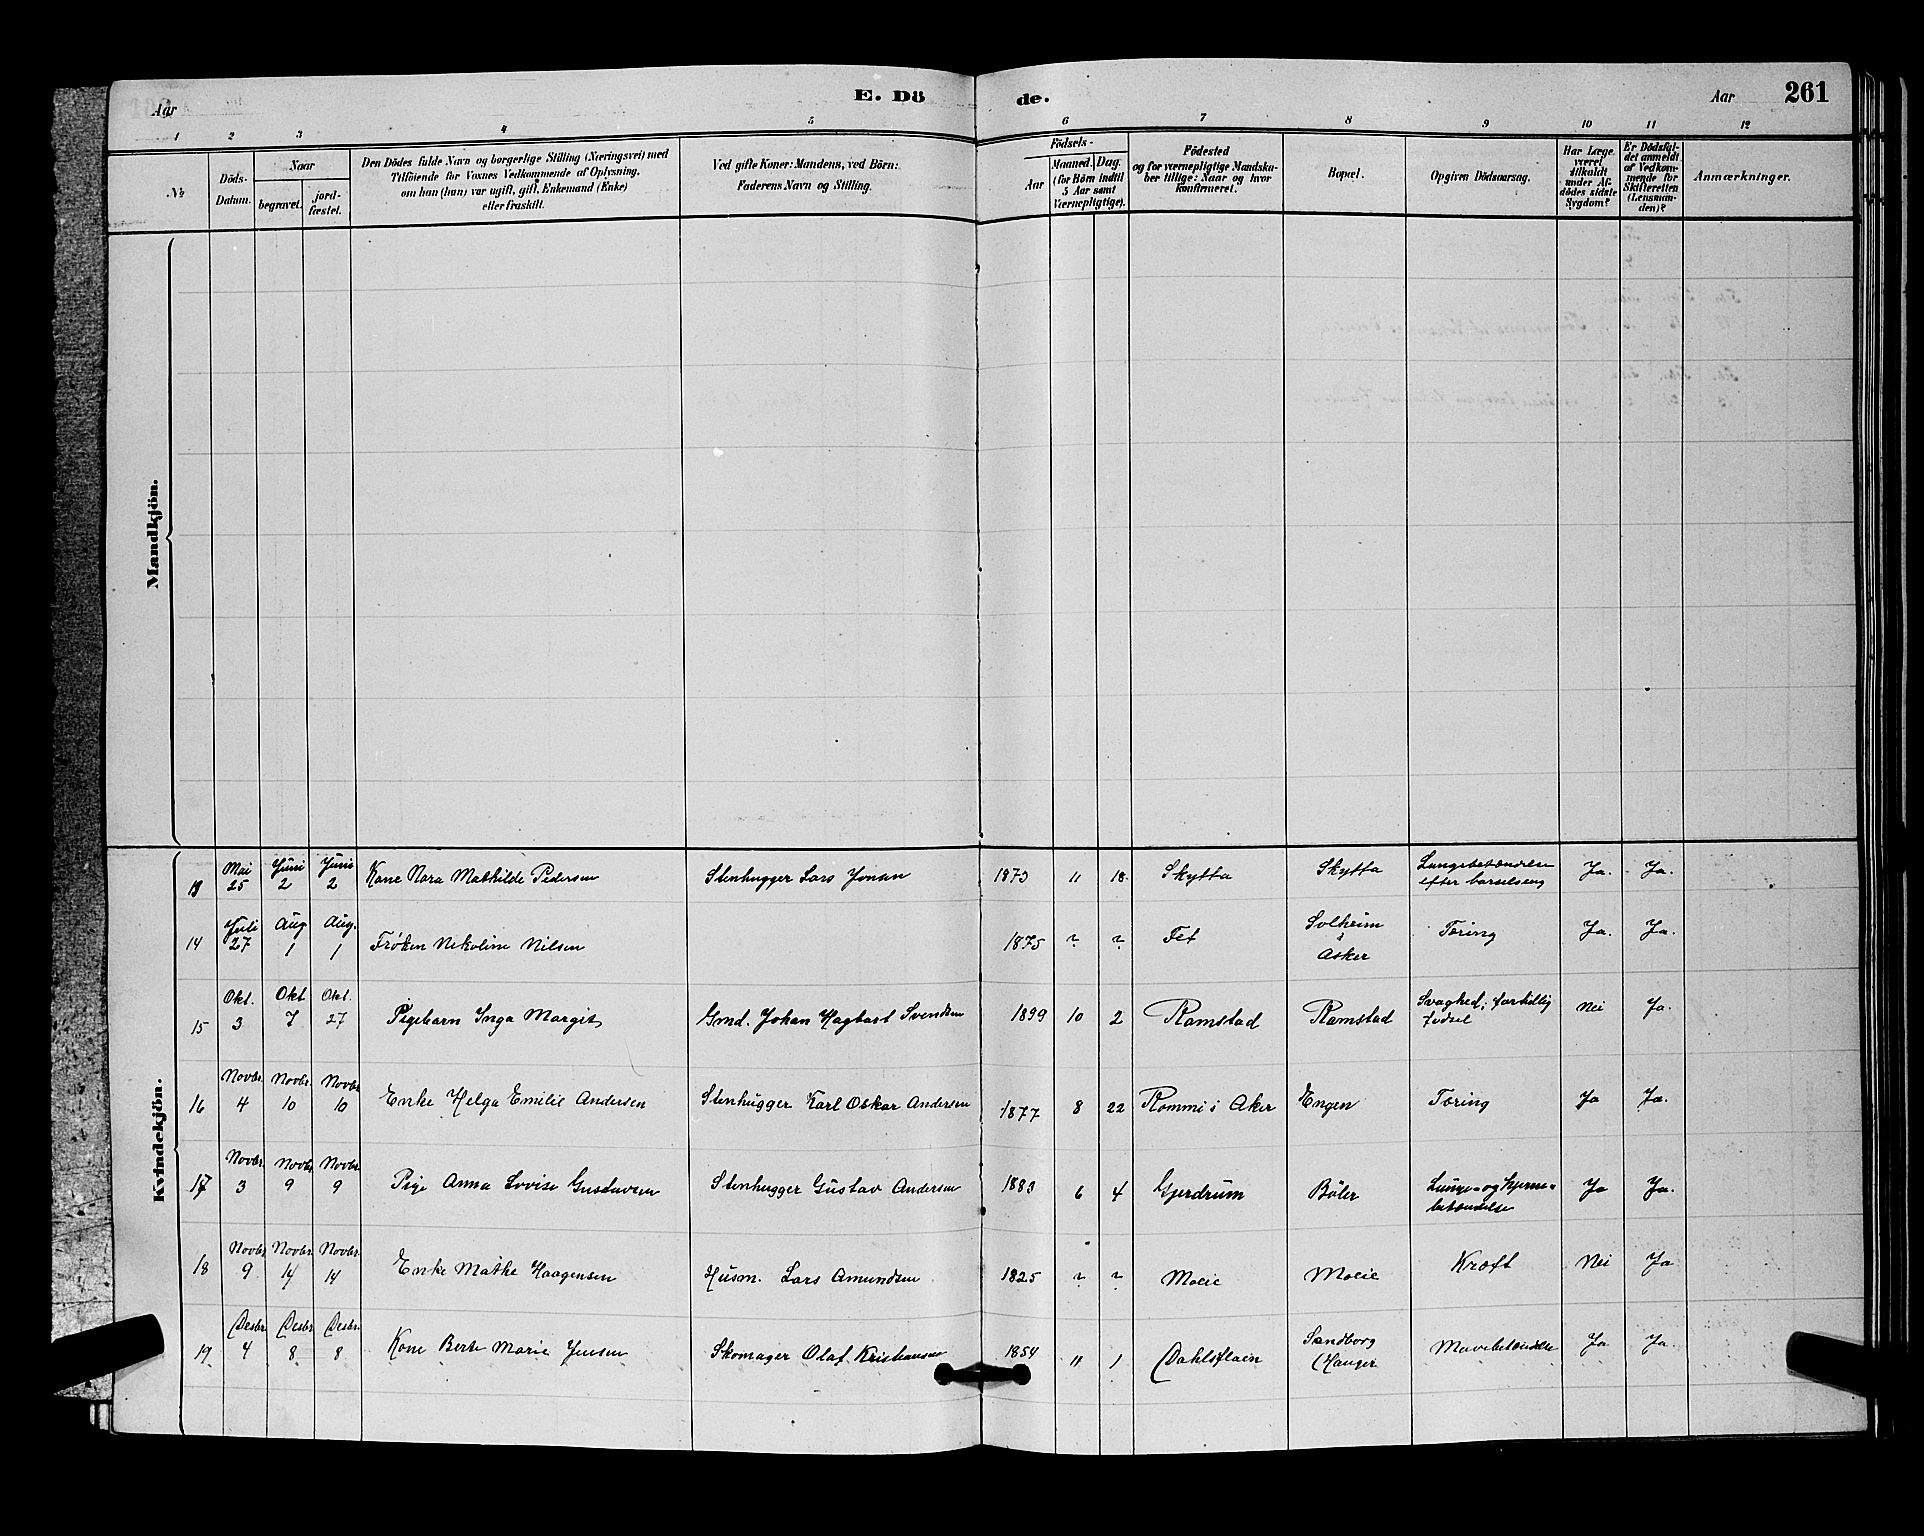 Aar
E. Dö
de.
Aar
261
1 2 3 4 5 6 7 8 9 10 11 12
No
Döds-
Datum.
Naar
begravet.
jord-
fæstet.
Den Dödes fulde Navn og borgerlige Stilling (Næringsvei) med
Tilföiende for Voxnes Vedkommende af Oplysning,
om han (hun) var ugift, gift, Enkemand (Enke)
eller fraskilt.
Ved gifte Koner: Mandens, ved Börn:
Faderens Navn og Stilling.
Födsels-
Aar
Maaned. Dag.
(for Börn indtil
5 Aar samt
Værnepligtige).
Födested
og for værnepligtige Mandska-
ber tillige: Naar og hvor
konfirmeret.
Bopæl.
Opgiven Dödsaarsag.
Har Læge
været
tilkaldt
under Af-
dödes sidste
Sygdom?
Er Dödsfal-
det anmeldt
af Vedkom-
mende for
Skifteretten
(Lensman-
den)?
Anmærkninger.
Mandkjön.
Kvindekjön.
13 Mai 25 Juni 2 Juni 2 Kone Nora Mathilde Pedersen Stenhugger Lars Jonan 1873 11 18 Skytta Skytta Lungebetændelse efter barselseng Ja. Ja.
14 Juli 27 Aug 1 Aug. 1 Frøken Nikoline Nilsen 1875 ? ? Fet Solheim i Asker Tæring Ja. Ja.
15 Okt. 3 Okt 7 Okt. 27 Pigebarn Inga Margit Gmd. Johan Hagbart Svendsen 1899 10 2 Ramstad Ramstad Svaghed; fortidlig fødsel Nei Ja.
16 Novbr. 4 Novbr. 10 Novbr. 10 Enke Helga Emilie Andersen Stenhugger Karl Oskar Andersen 1877 8 22 Rommi i Aker Engen Tæring Ja Ja.
17 Novbr. 3 Novbr. 9 Novbr. 9 Pige Anna Lovise Gustavsen Stenhugger Gustav Andersen 1883 6 4 Gjerdrum Bøler Lunge- og hjerne- betændelse Ja Ja.
18 Novbr. 9 Novbr. 14 Novbr. 14 Enke Mathe Haagensen Husm. Lars Amundsen 1825 ? ? Moeie Moeie Kræft Nei Ja
19 Desbr. 4 Desbr. 8 Desbr. 8 Kone Berte Marie Jensen Skomager Olaf Kristiansen 1854 11 1 Dahlsflaen Sandborg Hauger Mavebetændelse Ja Ja.